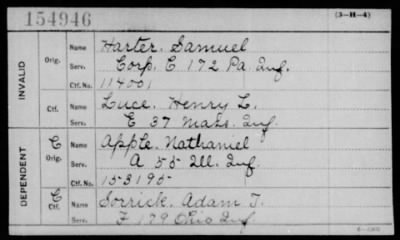 154946
(3-H-4)
INVALID
Orig.
Name Harter, Samuel
Serv. Corp. E 172 Pa. Inf.
Ctf. No. 114001
Ctf.
Name Luce, Henry L.
Serv. E 37 Mass. Inf.
DEPENDENT
C
Orig.
Name Apple, Nathaniel
Serv. A 55 Ill. Inf.
Ctf. No. 153195
C
Ctf.
Name Sorrick, Adam T.
Serv. F 179 Ohio Inf